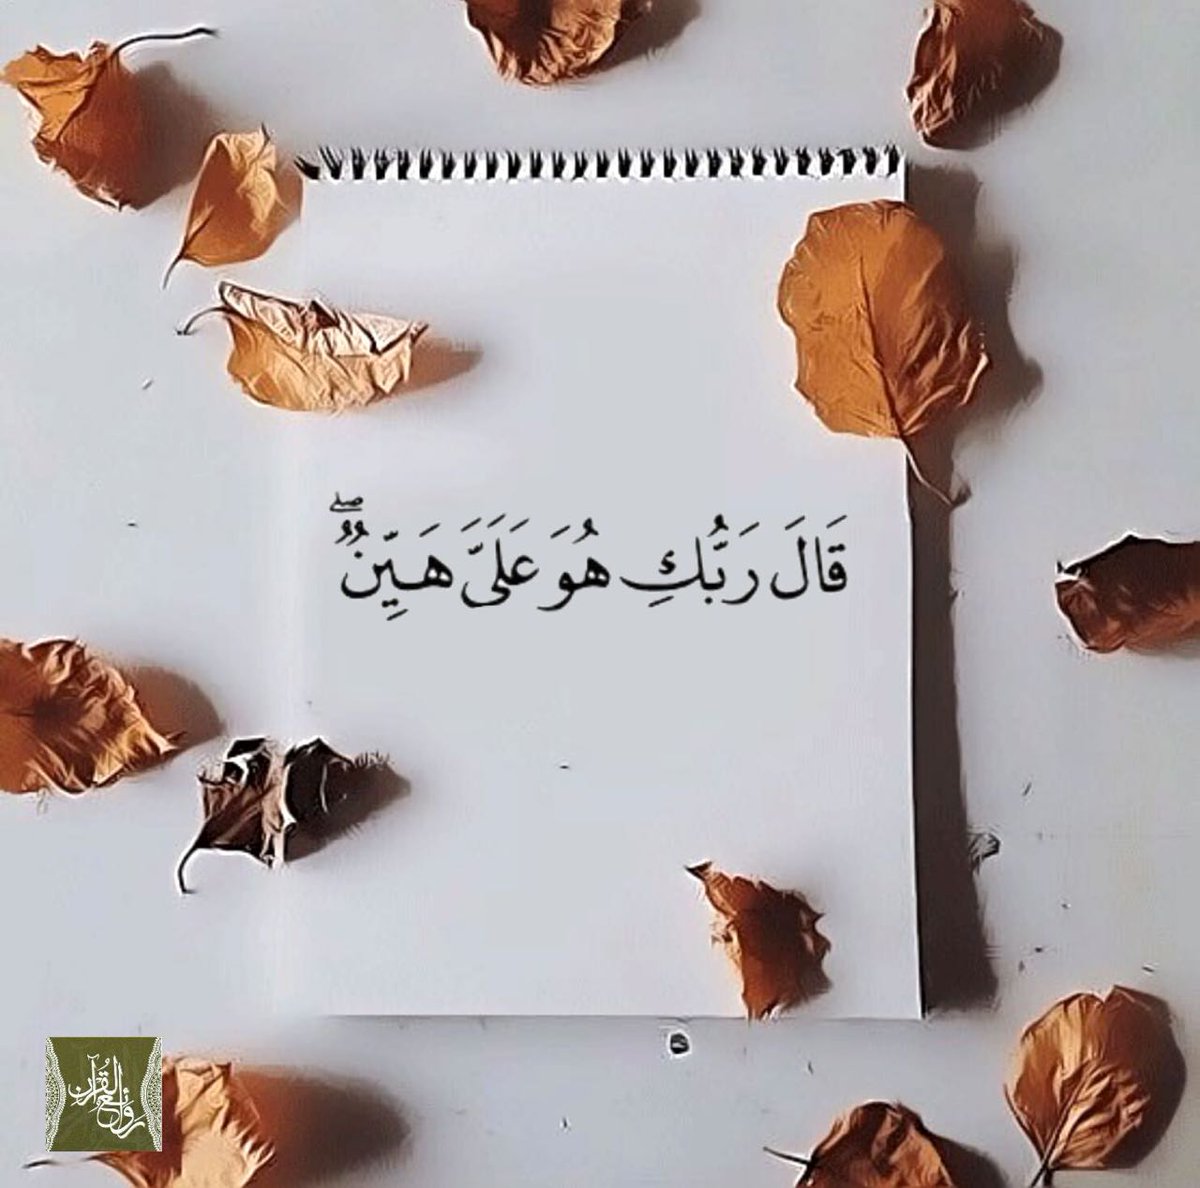 قَالَ رَبُّكِ هُوَ عَلَىَّ هَيِّنٌ ۖ
روائع القرآن